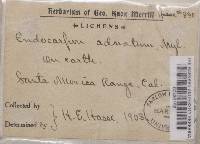 Herbarium of Geo. Knox Merrill
LICHENS
Endocarpon adnatum, Nyl.
on earth
Santa Monica Range, Cal.
Collected by
Determined by
H. E. Hasse, 1903